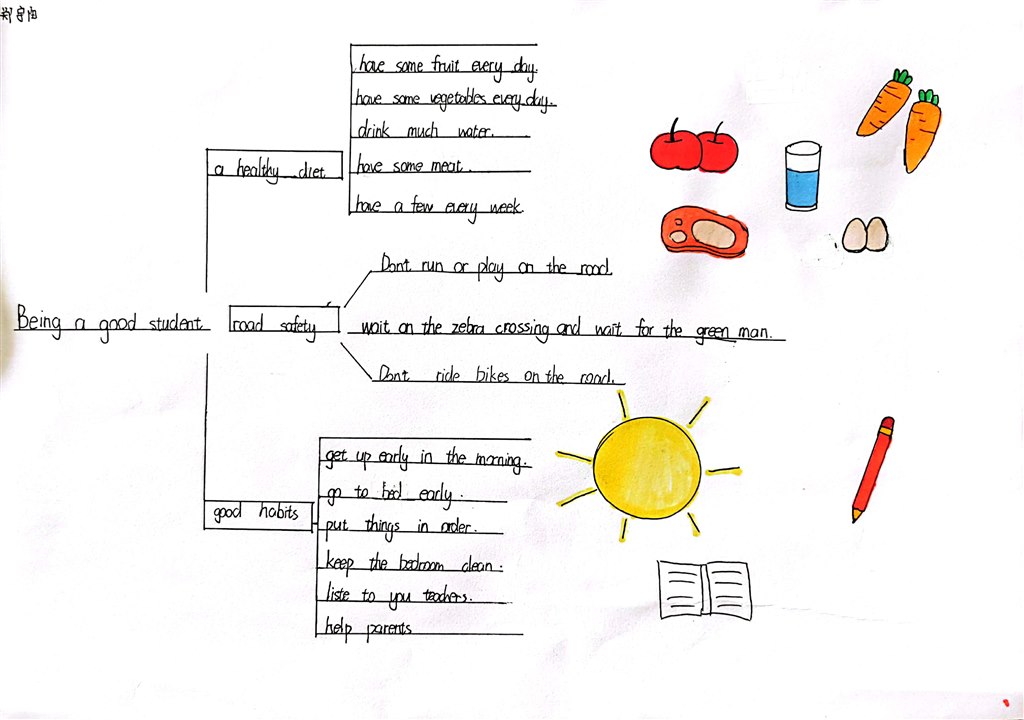 a healthy diet
have some fruit every day.
have some vegetables every day.
drink much water.
have some meat.
have a few every week.
Being a good student
road safety
Dont run or play on the road.
wait on the zebra crossing and wait for the green man.
Dont ride bikes on the road.
good habits
get up early in the morning.
go to bed early.
put things in order.
keep the bedroom clean.
liste to you teachers.
help parents